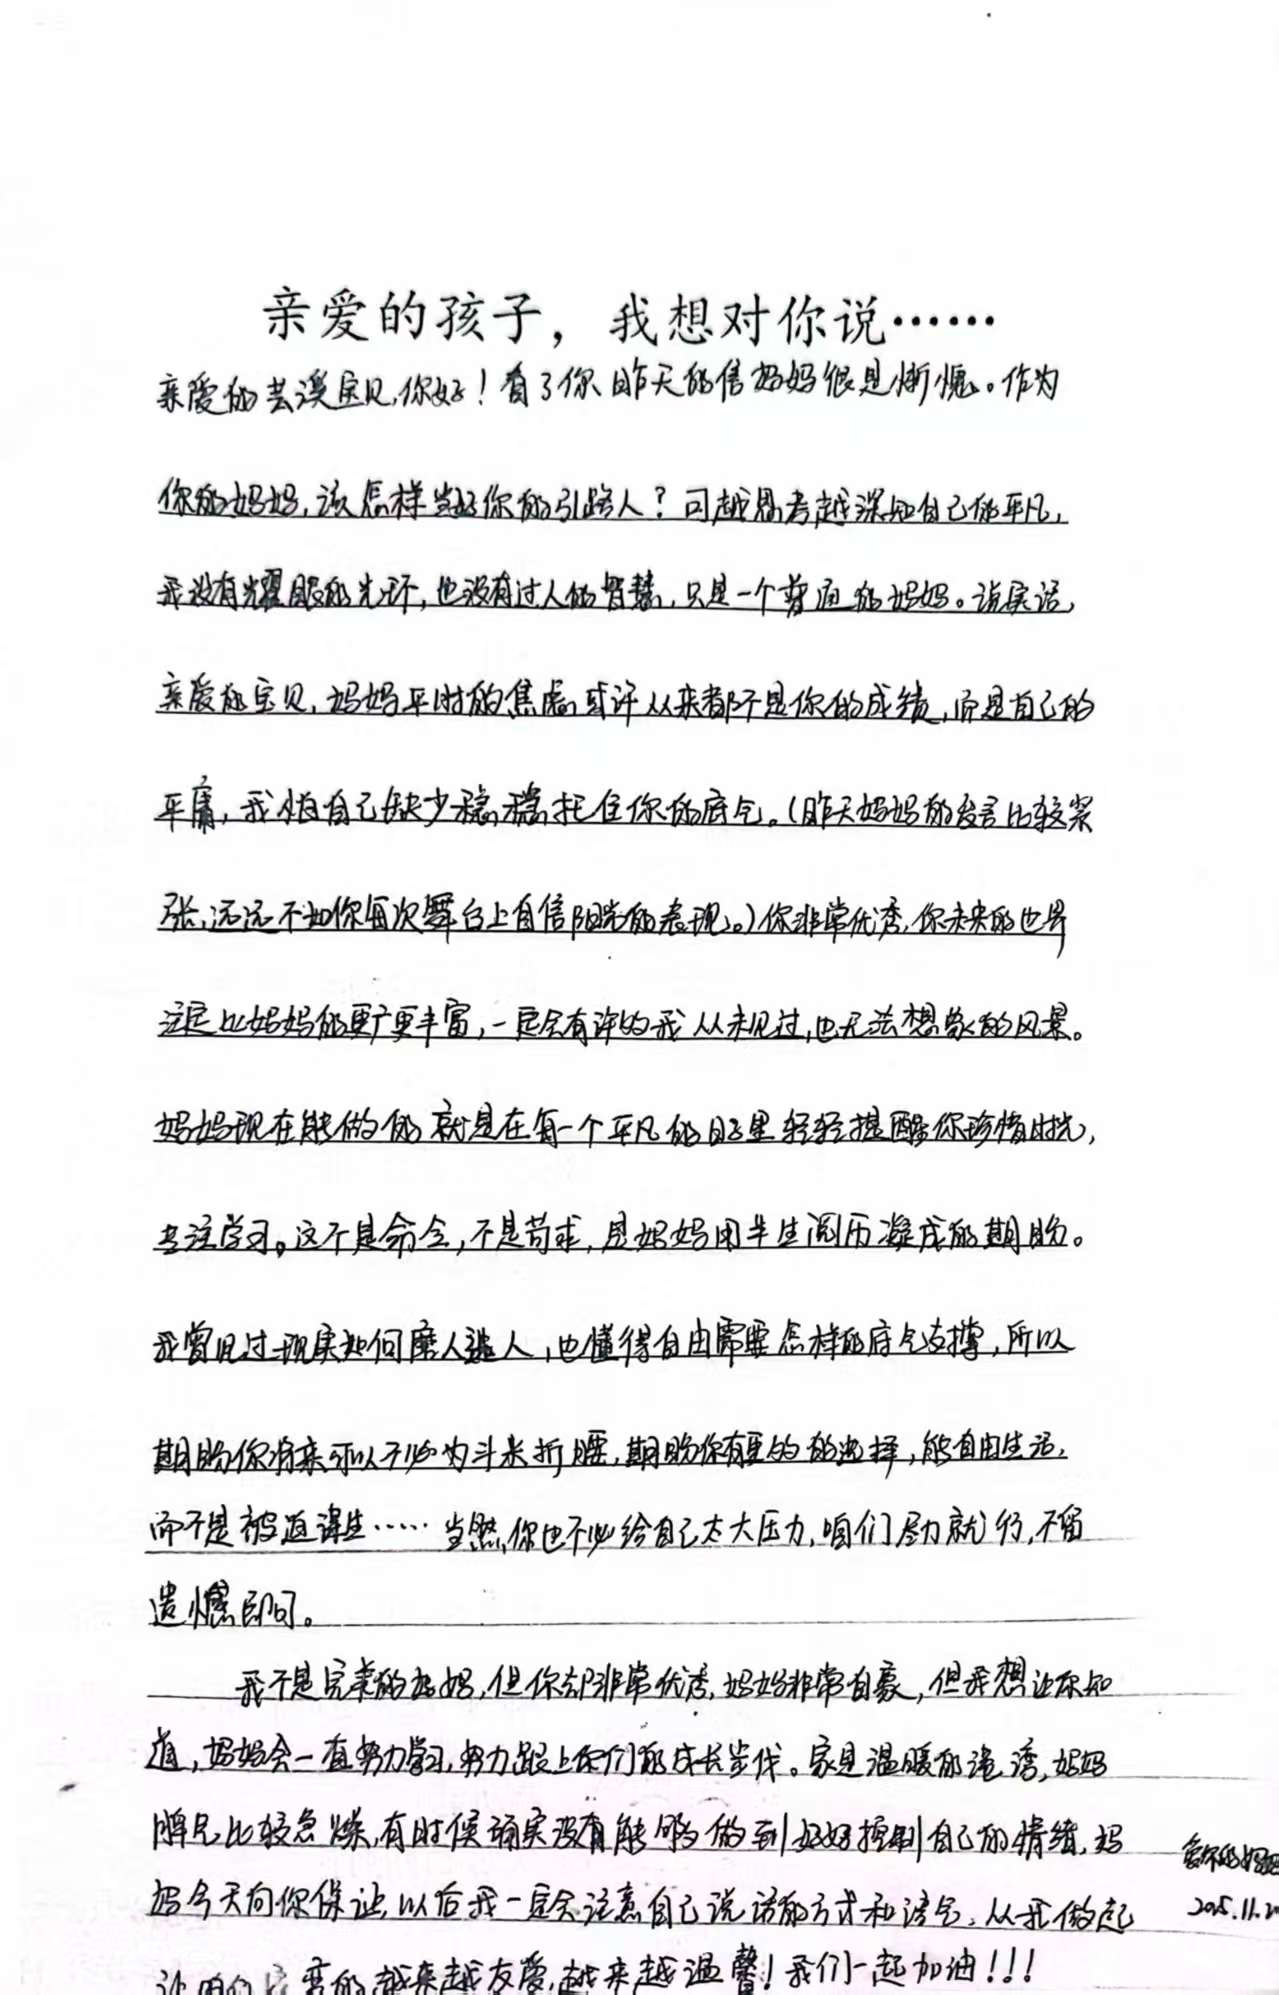 亲爱的孩子，我想对你说……
亲爱的芸溪宝贝，你好！看了你昨天的信妈妈很是惭愧。作为
你的妈妈，该怎样当好你的引路人？可越思考越深知自己的平凡，
我没有耀眼的光环，也没有过人的智慧，只是一个普通的妈妈。说实话，
亲爱的宝贝，妈妈平时的焦虑或许从来都不是你的成绩，而是自己的
平庸，我怕自己缺少稳稳托住你的底气。（昨天妈妈的发言比较紧
张，远远不如你每次舞台上自信阳光的表现。）你非常优秀，你未来的世界
注定比妈妈的更广更丰富，一定会有许多我从未见过，也无法想象的风景。
妈妈现在能做的就是在每一个平凡的日子里轻轻提醒你珍惜时光，
专注学习。这不是命令，不是苛求，是妈妈用半生阅历凝成的期盼。
我曾见过现实如何磨人逼人，也懂得自由需要怎样的底气支撑，所以
期盼你将来可以不必为斗米折腰，期盼你有更多的选择，能自由生活，
而不是被迫谋生……当然，你也不必给自己太大压力，咱们尽力就行，不留
遗憾即可。
我不是完美的妈妈，但你却非常优秀，妈妈非常自豪，但我想让你知
道，妈妈会一直努力学习，努力跟上你们的成长步伐。家是温暖的港湾，妈妈
脾气比较急燥，有时候确实没有能够做到好好控制自己的情绪，妈
妈今天向你保证，以后我一定会注意自己说话的方式和语气，从我做起
让咱们家变的越来越友爱，越来越温馨！我们一起加油！！！
爱你的妈妈
2025.11.2